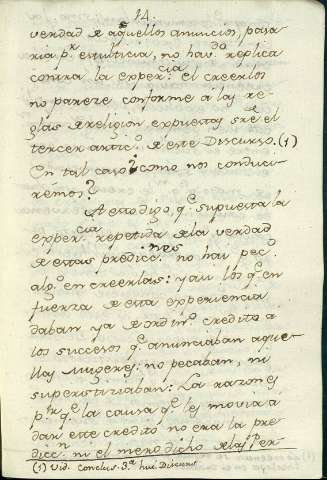 14.
verdad de aqͤllos anuncios, pasa
ria pͬ estulticia, no havᵈᵒ replica
contra la experᶜⁱᵃ: el creerlos
no parece conforme a las re-
glas de religion expuestas sͬe el
tercer articͦ. de este Discurso.(1)
En tal caso ¿como nos conduci-
rémos?
A esto digo, qͤ. supuesta la
experᶜⁱᵃ. repetida de la verdad
de estas prediccⁿᵉˢ. no hay pecͦ.
algͦ. en creerlas: y así los qͤ en
fuerza de esta experiencia
daban ya de ordinͦ. credito a
los sucesos qͤ. anunciaban aque-
llas mugeres: no pecaban, ni
supersticiaban: La razon es
pͬqͤ la causa qͤ les movia a
dar este credito no era la pre-
diccⁿ. ni el mero dicho de las Per-
(1) Vid. conclus. 3ᵃ hui. Discurso